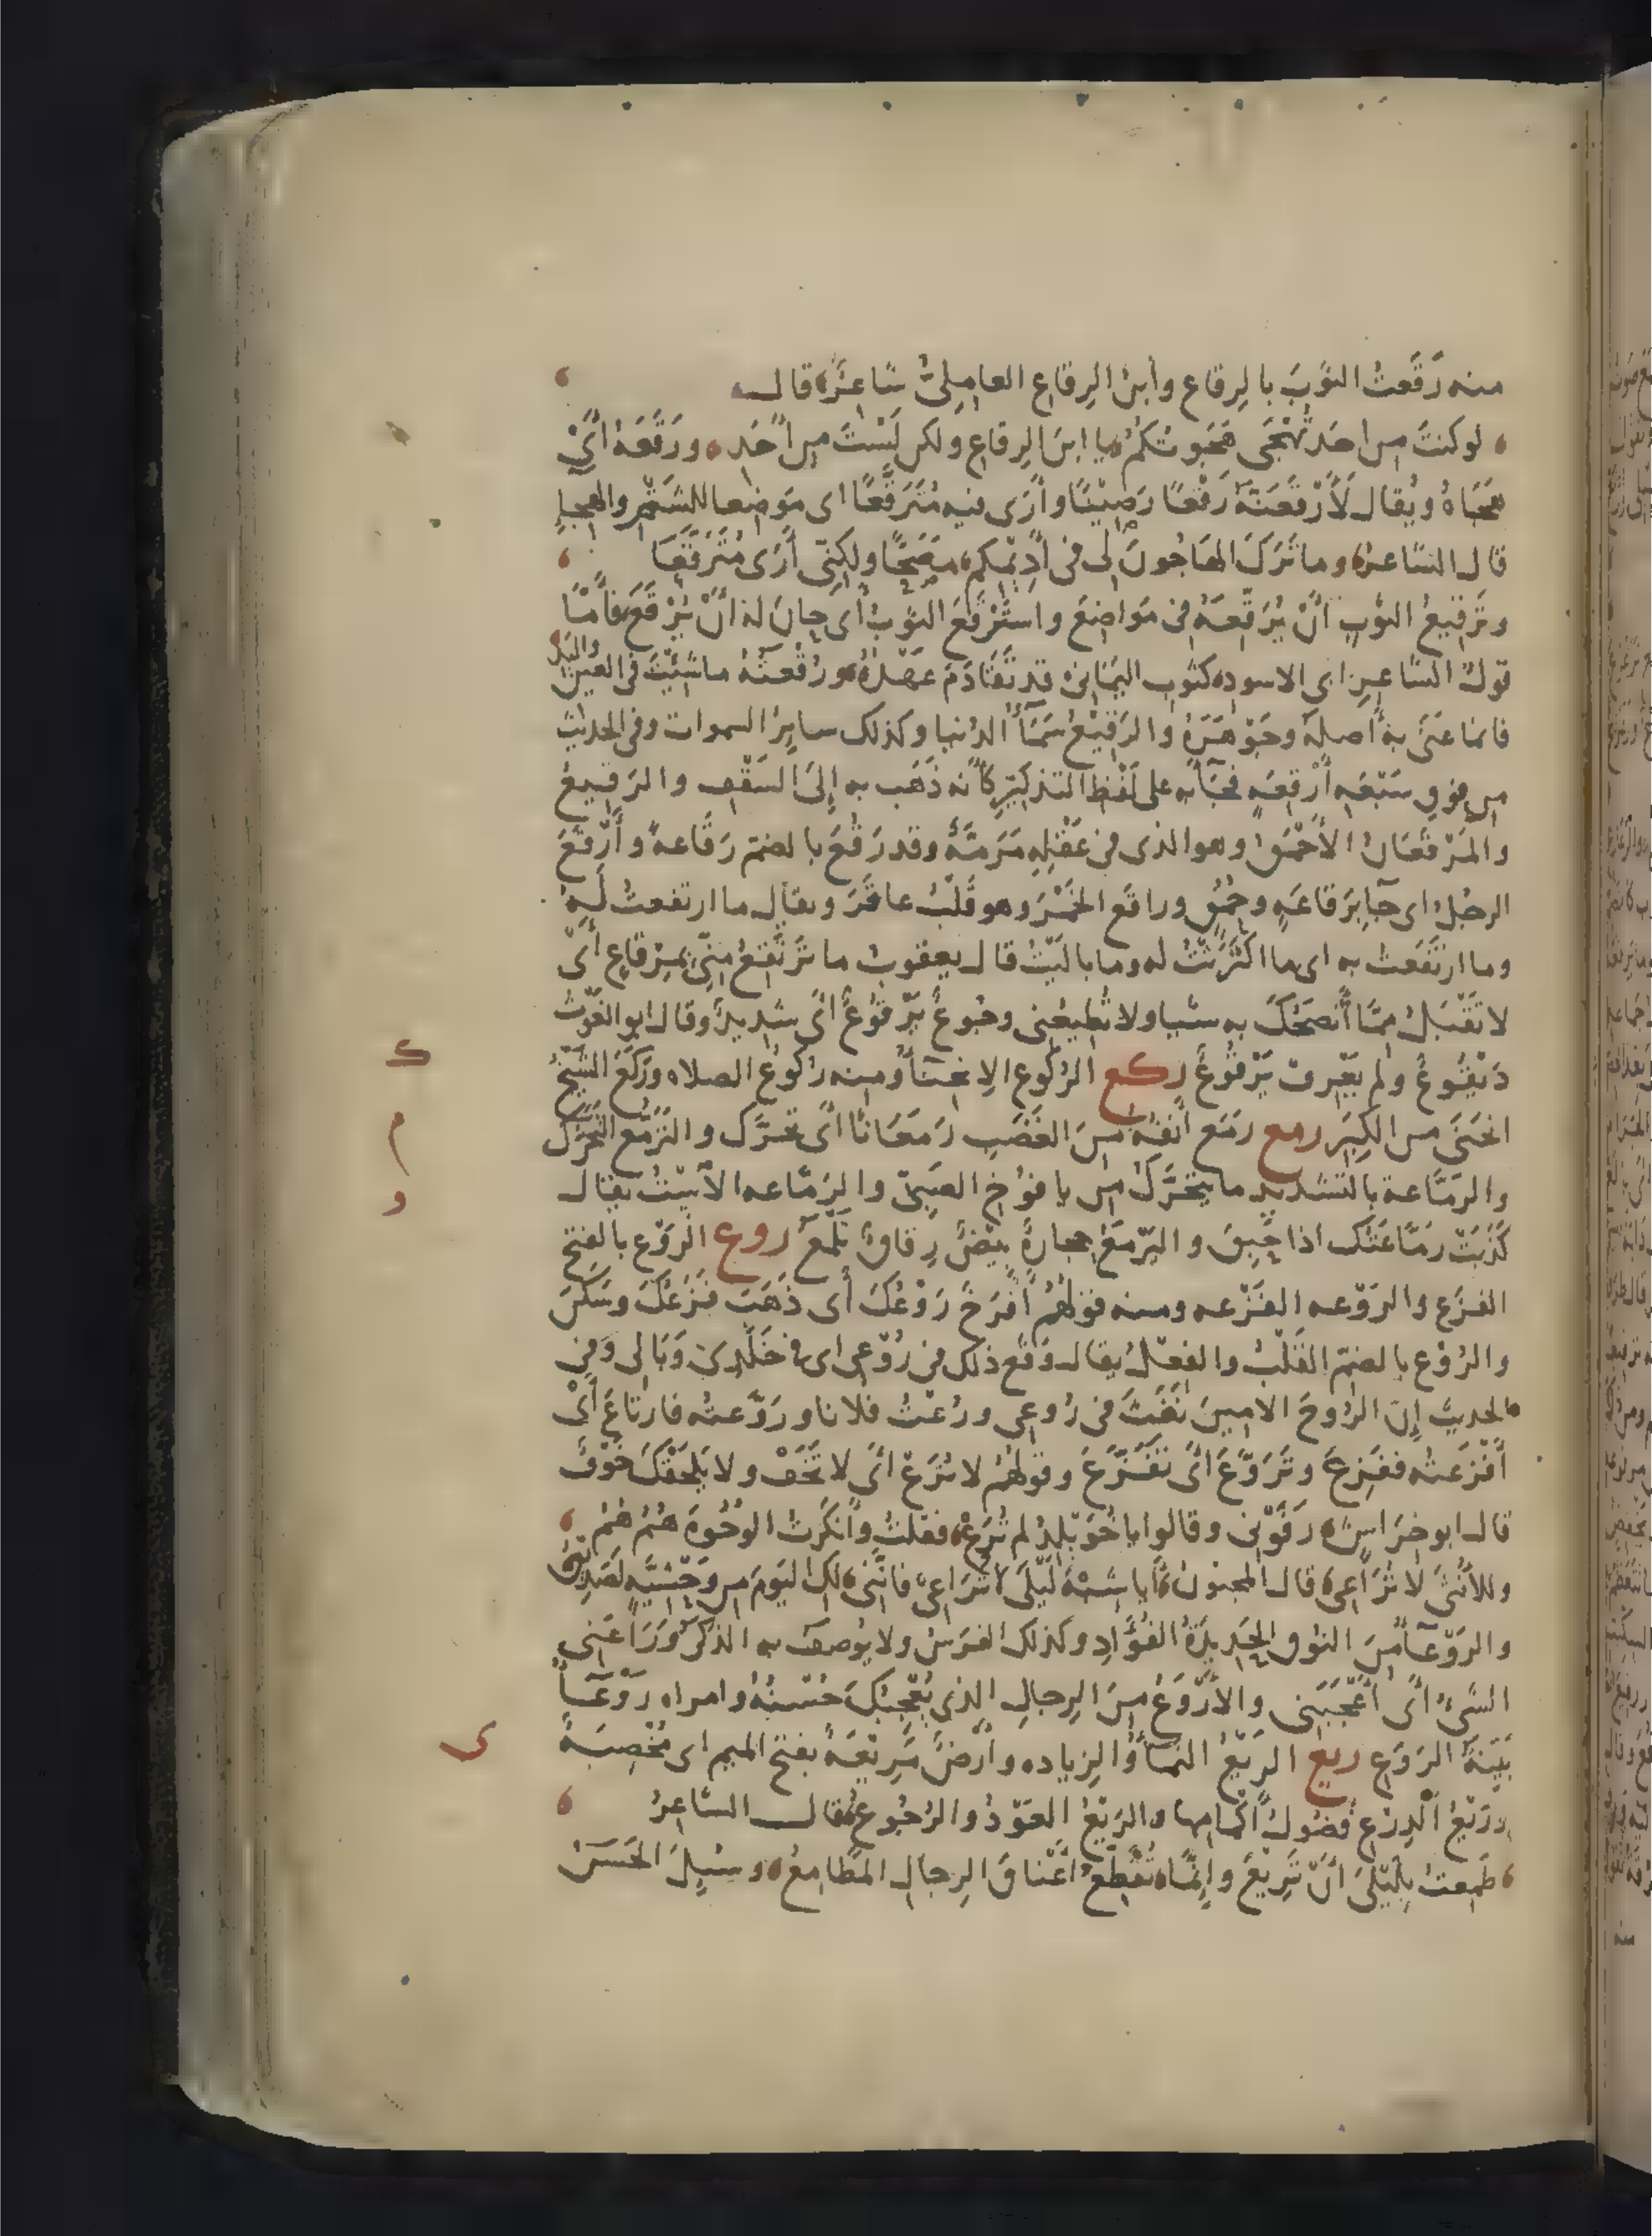 منه رَقَعتُ الثوبَ بالرِقاع وابنُ الرِقاعِ العامِلِىُّ شاعِرٌ قال
لو كنتَ من احَدٍ تُهْجَى هَجَوتُكُمُ يا ابنَ الرِقاعِ ولكن لَسْتَ من اَحَدِ ورَقَعَهُ أىْ
هَجَاهُ ويُقال لَأَرْقَعَنَّهُ رَقْعًا رَصِيْنًا وأرَى فيه مُتَرَقَّعًا اى مَوضِعا للشَتْمِ والهِجاءِ
قال الشاعرُ وما تَرَكَ الهَاجُونَ لى فى أَدِيْمِكم مَصَحًّا ولكِنّى أَرَى مُتَرَقَّعَا
وتَرقِيعُ الثوبِ أنْ يُرَقِّعَهُ فى مَواضِعَ واسْتَرْقَعَ الثوبُ أى حانَ له أنْ يُرْقَعَ فأمّا
قولُ الشاعِرِ ابى الاسود كثَوبِ اليَمَانِى قد تَقَادَمَ عَهْدُهُ ورُقْعَتُهُ ماشِئْتَ فى العين واليَدِ
فانما عَنَى به أصلَهُ وجَوْهَرَهُ والرَقِيْعُ سَمَآءُ الدُنيا وكذلك سايِرُ السموات وفى الحديث
من فوقِ سَبْعَهِ أَرْقِعَهٍ فجَآءَ به على لَفْظِ التذكيْرِ كأنه ذَهَب به إِلَى السَقْفِ والرَقِيعُ
والمَرْقَعَانُ الأَحْمَقُ وهو الذى فى عَقْلِهِ مَرَمَّةٌ وقد رَقُعَ بالضمّ رَقَاعهً وأَرْقَعَ
الرجُلُ اى جَآ بِرَقاعَهٍ وحُمْقٍ وراقَع الخَمْرَ وهو قَلْبُ عاقَرَ ويقال ما ارتقعتُ لَهُ
وما ارتَقَعتُ به اى ما اكْتَرَثْتُ له وما بالَيْتُ قال يعقوبُ ما تَرْتَقِعُ مِنّى بمِرْقاعٍ أىْ
لا تَقْبَلُ مِمّا أَنْصَحُكَ به شيا ولا تُطيعُنِى وجُوعٌ يَرْقُوعٌ أىْ شدِيدٌ وقال ابو الغَوْث
دَيْقُوعٌ ولم يَعْرِف يَرْقُوعٌ ركع الرُكُوع الاِنحناءُ ومنه رُكُوعُ الصلاه ورَكَعَ الشيْخُ
انحَنَى من الكِبَر رمع رَمَع أَنفُهُ مِنَ الغَضَب رَمَعَانًا أىْ تحرَّك والتَرَمُّع التَحَرُّك
والرَمَّاعة بالتشديد ما يتَحَرَّكُ من يافُوخِ الصَبِىّ والرَمَّاعه الأسْتُ يقال
كَذَبَتْ رَمَّاعَتُك اذا حَبِقَ واليَرْمَعُ حِجارَةٌ بِيْضٌ رِقاقٌ تَلْمَعُ روع الرَوْع بالفتح
الفزَع والرَوْعه الفَزْعه ومنه قولُهُم أَفْرَخَ رَوْعُكَ أى ذَهَبَ فَزَعُكَ وسَكَنَ
والرُوْع بالضمّ القَلْبُ والعقلُ يقال وَقَع ذلك فى رُوْعِى اى فى خَلَدِى وَبَالى وَفى
الحديث إِنَّ الرُوحَ الامينَ نَفَثَ فى رُوعِى ورُعْتُ فلانا ورَوَّعتُه فارتاعَ أىْ
أَفْزَعتُه ففَزِعَ وتَرَوَّعَ أىْ تفَزَّعَ وقولُهُم لا تُرَعْ أىْ لا تَخَفْ ولا يَلْحَقْكَ خَوْفٌ
قال ابو خِرَاشٍ رَفَوْنِى وقالوا يا خُوَيْلِدُ لم تُرَعْ فقلتُ وأنكَرتُ الوُجُوهَ هُمُ هُمُ
وللأُنْثَى لا تُرَاعِى قال المجنونُ أيا شِبْهَ لَيْلَى لاتُرَاعِى فانَّنِى لكِ اليَوْمَ من وَحْشِيَّهٍ لَصَدِيْقُ
والرَوْعآءُ مِنَ النُوق الحَدِيدَةُ الفُؤَادِ وكذلك الفرَسُ ولا يُوصف به الذَكَرُ ورَاعَنِى
الشَىْءُ أىْ أَعْجَبَنِى والأَرْوَعُ مِنَ الرِجالِ الذى يُعْجِبُكَ حُسْنُهُ وامراه رَوْعَآءُ
بَيِّنَةُ الرَوَعِ ريع الرَيْعُ النمَآءُ والزياده وأَرْضٌ مَرِيْعَةٌ بفتح الميم اى مُخْصِبَةٌ
ورَيْعُ الدِرْعِ فُضُولُ أَكْمَامِها والرَيْعُ العَوْدُ والرُجُوعُ قال الشاعِرُ
طَمِعتُ بِلَيْلَى أَنْ تَرِيْعَ وإِنَّما تُقَطِّعُ أَعْناقَ الرِجالِ المَطَامِعُ وسُئِلَ الحَسَنُ
ك
م
و
ى